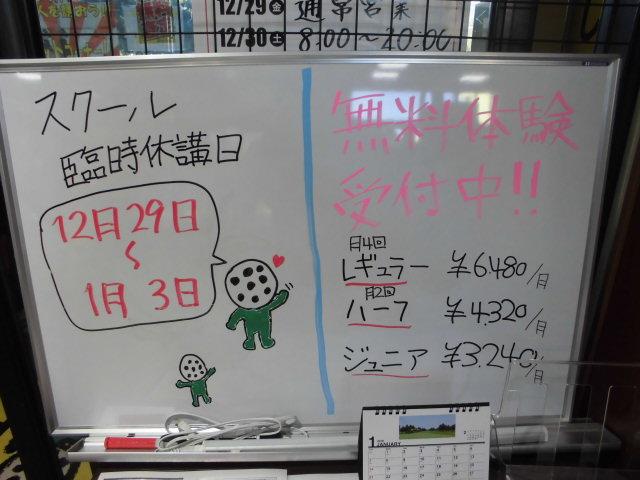 12/29㊎ 通常営業
12/30㊏ 8:00〜20:00
スクール
臨時休講日
12月29日
〜
1月3日
無料体験
受付中!!
月4回
レギュラー ¥6,480/月
月2回
ハーフ ¥4,320/月
ジュニア ¥3,240/月
1 JANUARY